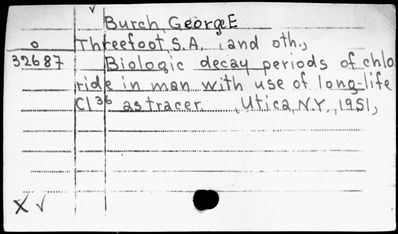 √
Burch, George E
o Threefoot, S.A., and oth.,
32687 Biologic decay periods of chlo
ride in man with use of long-life
Cl36 as tracer. Utica, N.Y., 1951,
X √